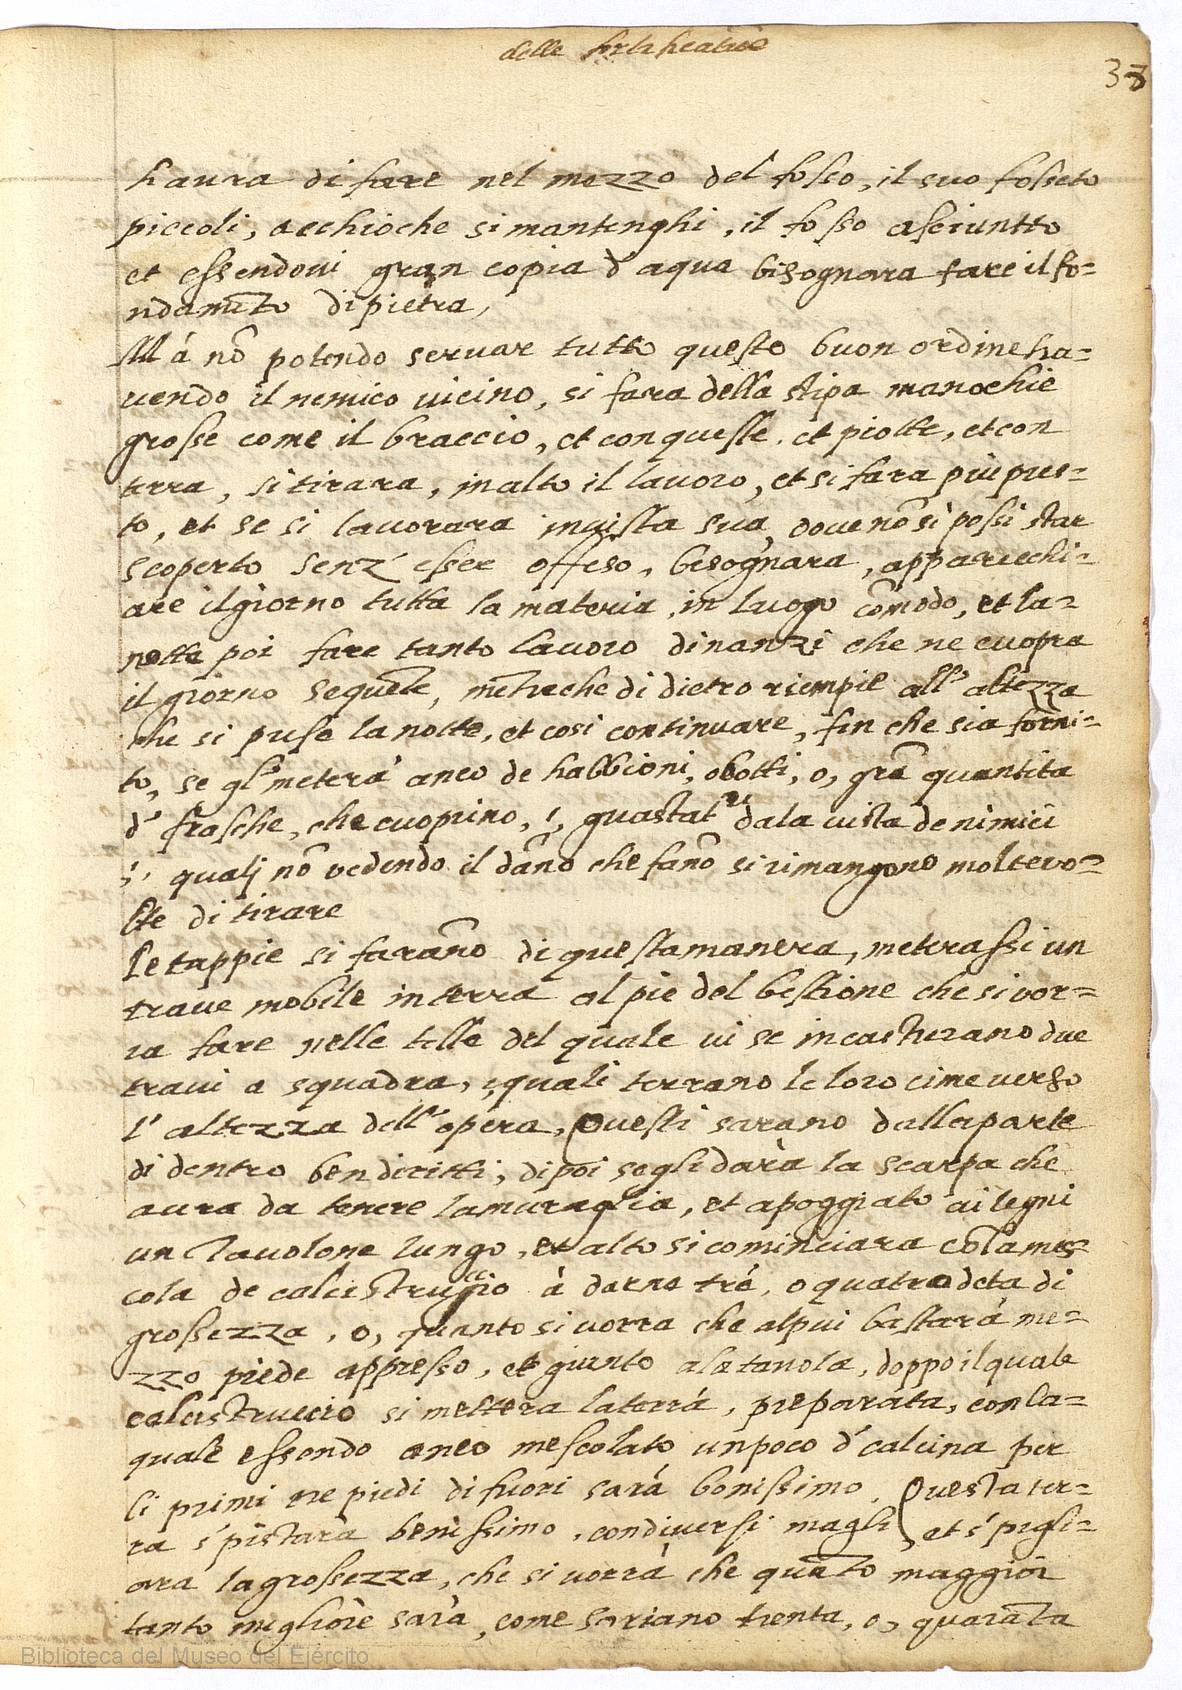 delle
38
haura di fare nel mezzo del fosso, il suo fosseto
piccoli, acchioche si mantenghi, il fosso asciuntto
et essendoui gran copia d aqua bisognara fare il fo=
ndamẽto di pietra,
Má nõ potendo seruar tutto questo buon ordine ha=
uendo il nemico uicino, si fara della stipa manochie
grosse come il braccio, et con quelle, et piotte, et con
terra, si tirara, in alto il lauoro, et si fara piu pres=
to, et se si lauorara in uista sua, doue nõ si possi star
scoperto senz' esser offeso, besognara, apparecchi=
are il giorno tutta la materia, in luogo cõmodo, et la=
notte poi fare tanto lauoro dinanzi che ne cuopra
il giorno sequẽte, mẽtreche di dietro riempie all' altezza
che si puse la notte, et cosi continuare, fin che sia forni=
to, se gl' meterá anco de habbioni, o botti, o, grã quantita
d' frasche, che cuoprino, i, guastat.ri dala uista de nimici
i, qualj nõ vedendo il dãno che fanõ si rimangono molte vo=
lte di tirare
Le tappie si farãno di questa manera, meterassi un
traue mobile in terra al pie del bestione che si vor=
ra fare nelle telle del quale ui se incasturano due
traui a squadra, i quali terrano le loro cime verso
l' altezza dell' opera, Questi sarano dalla parte
di dentro ben diritti, dipoi se gli dará la scarpa che
aura da tenere la muraglia, et apoggiato ai legni
un tauolone lungo, et alto si cominciara cõ la mes=
cola de calcistruccio à darne tré, o quatro deta di
grossezza, o, quanto si vorra che al piu bastará me=
zzo piede appresso, et giunto ala tauola, doppo il quale
calcistruccio si mettera la terrá, preparata, con la=
quale essendo anco mescolato un poco d' calcina per
li primi tre piedi di fuori sará bonissimo, Questa ter=
ra s' pistara benissimo, con diuersi magli, et s' pigli=
ara la grossezza, che si vorrá che quãto maggior
tanto migliore sará, come sariano trenta, o, quarãta
Biblioteca del Museo del Ejército